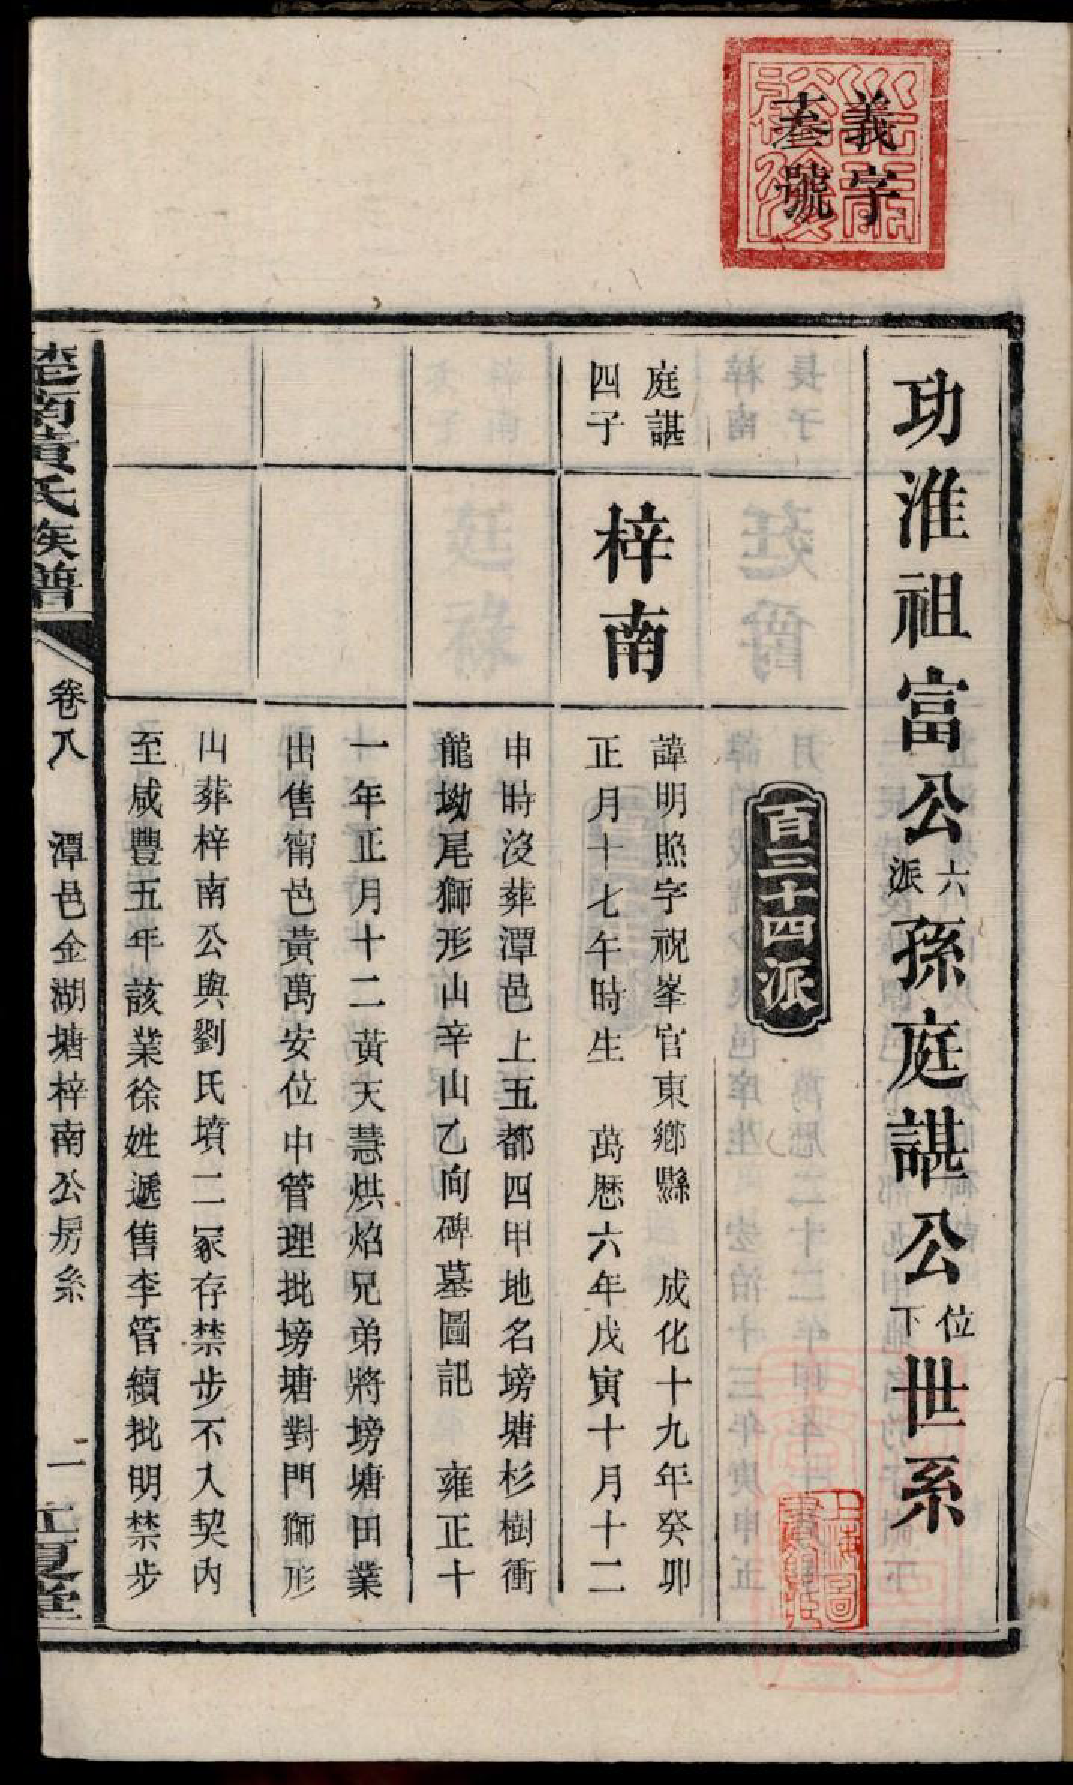 義字
叁號
功淮祖富公六派孫庭諶公位下世系
百二十四派
庭諶
四子
梓南
諱明照字祝峯官東鄉縣 成化十九年癸卯
正月十七午時生 萬歷六年戊寅十月十二
申時沒葬潭邑上五都四甲地名塝塘杉樹衝
龍坳尾獅形山辛山乙向碑墓圖記 雍正十
一年正月十二黃天慧烘焰兄弟將塝塘田業
出售甯邑黃萬安位中管理批塝塘對門獅形
山葬梓南公與劉氏墳二冢存禁步不入契內
至咸豐五年該業徐姓遞售李管續批明禁步
楚南黃氏族譜
卷八 潭邑金湖塘梓南公房系
一 江夏堂
上海圖
書館藏